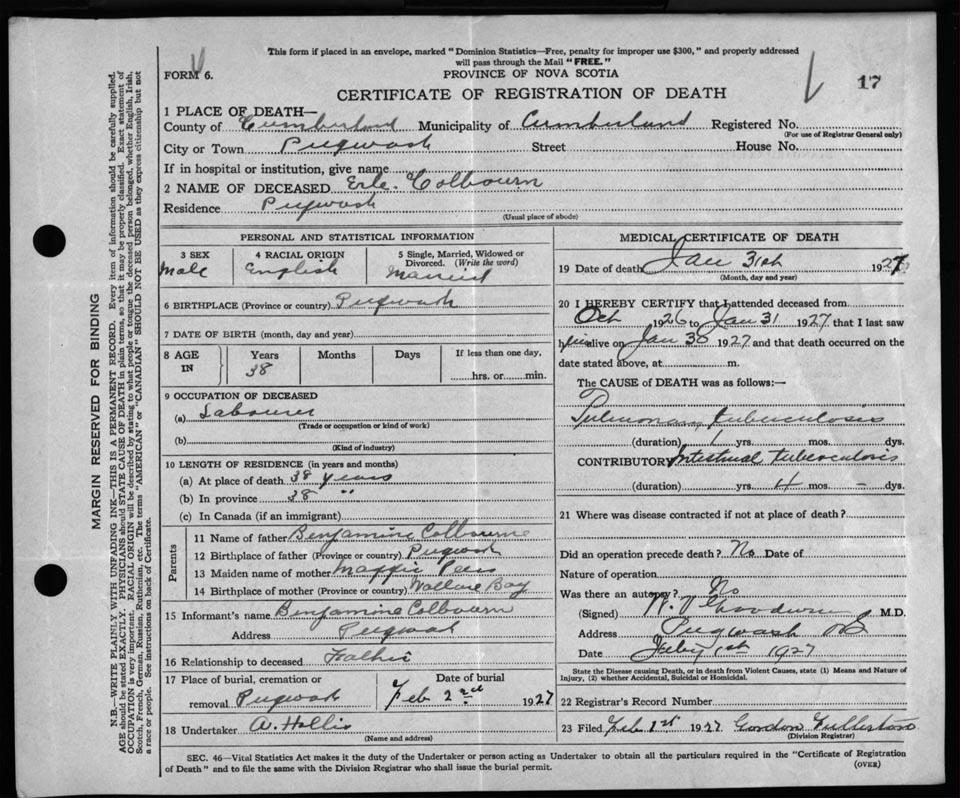 This form if placed in an envelope, marked "Dominion Statistics—Free, penalty for improper use $300," and properly addressed
will pass through the Mail "FREE."
FORM 6.
PROVINCE OF NOVA SCOTIA
17
CERTIFICATE OF REGISTRATION OF DEATH
1 PLACE OF DEATH—
County of Cumberland Municipality of Cumberland Registered No.
(For use of Registrar General only)
City or Town Pugwash Street House No.
If in hospital or institution, give name
2 NAME OF DECEASED Erle Colbourn
Residence Pugwash
(Usual place of abode)
PERSONAL AND STATISTICAL INFORMATION
3 SEX 4 RACIAL ORIGIN 5 Single, Married, Widowed or
Divorced. (Write the word)
Male English Married
6 BIRTHPLACE (Province or country) Pugwash
7 DATE OF BIRTH (month, day and year)
8 AGE IN Years Months Days If less than one day,
38 hrs. or min.
9 OCCUPATION OF DECEASED
(a) Labourer
(Trade or occupation or kind of work)
(b)
(Kind of industry)
10 LENGTH OF RESIDENCE (in years and months)
(a) At place of death 38 years
(b) In province 38 "
(c) In Canada (if an immigrant)
Parents
11 Name of father Benjamine Colbourne
12 Birthplace of father (Province or country) Pugwash
13 Maiden name of mother Maggie
14 Birthplace of mother (Province or country) Wallace Bay
15 Informant's name Benjamine Colbourn
Address Pugwash
16 Relationship to deceased Father
17 Place of burial, cremation or Date of burial
removal Pugwash Feb 2nd 1927
18 Undertaker A. Hollis
(Name and address)
MEDICAL CERTIFICATE OF DEATH
19 Date of death Jan 31st 1927
(Month, day and year)
20 I HEREBY CERTIFY that I attended deceased from
Oct 1926 to Jan 31 1927 that I last saw
him alive on Jan 30 1927 and that death occurred on the
date stated above, at m.
The CAUSE of DEATH was as follows:—
Pulmonary tuberculosis
(duration) 1 yrs. mos. dys.
CONTRIBUTORY Intestinal tuberculosis
(duration) yrs. 4 mos. – dys.
21 Where was disease contracted if not at place of death?
Did an operation precede death? No Date of
Nature of operation
Was there an autopsy? No
(Signed) Goodwin M.D.
Address Pugwash NS
Date 1st 1927
State the Disease causing Death, or in death from Violent Causes, state (1) Means and Nature of
Injury, (2) whether Accidental, Suicidal or Homicidal.
22 Registrar's Record Number
23 Filed Feb 1st 1927 Gordon Fullerton
(Division Registrar)
SEC. 46—Vital Statistics Act makes it the duty of the Undertaker or person acting as Undertaker to obtain all the particulars required in the "Certificate of Registration
of Death" and to file the same with the Division Registrar who shall issue the burial permit.
(OVER)
MARGIN RESERVED FOR BINDING
N.B.—WRITE PLAINLY WITH UNFADING INK—THIS IS A PERMANENT RECORD. Every item of information should be carefully supplied.
AGE should be stated EXACTLY. PHYSICIANS should STATE CAUSE OF DEATH in plain terms, so that it may be properly classified. Exact statement of
OCCUPATION is very important. RACIAL ORIGIN will be described by stating to what people or tongue the deceased person belonged, whether English, Irish,
Scotch, French, German, Russian, Ruthenian, etc. The terms "AMERICAN" or "CANADIAN" SHOULD NOT BE USED as they express citizenship but not
a race or people. See instructions on back of Certificate.